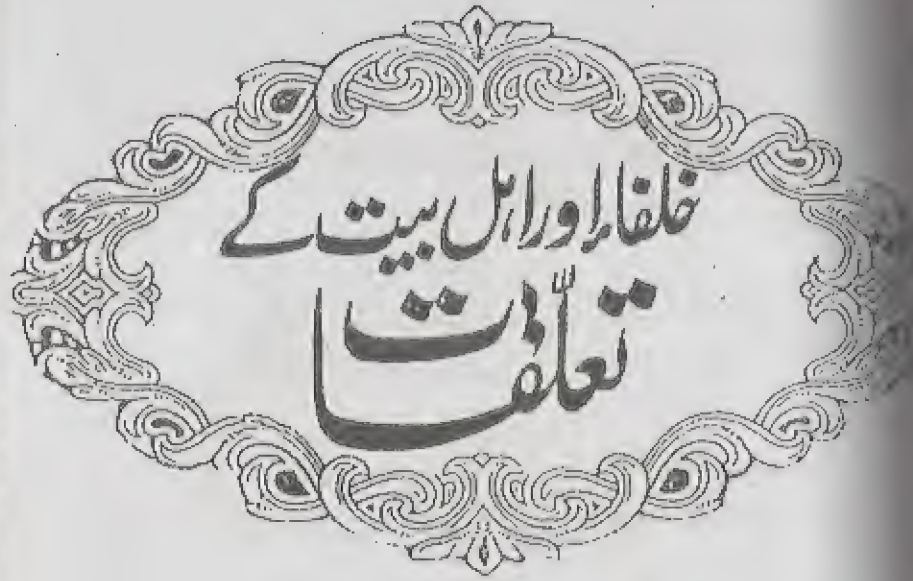 خلفاء اور اہل بیت کے
تعلّقات